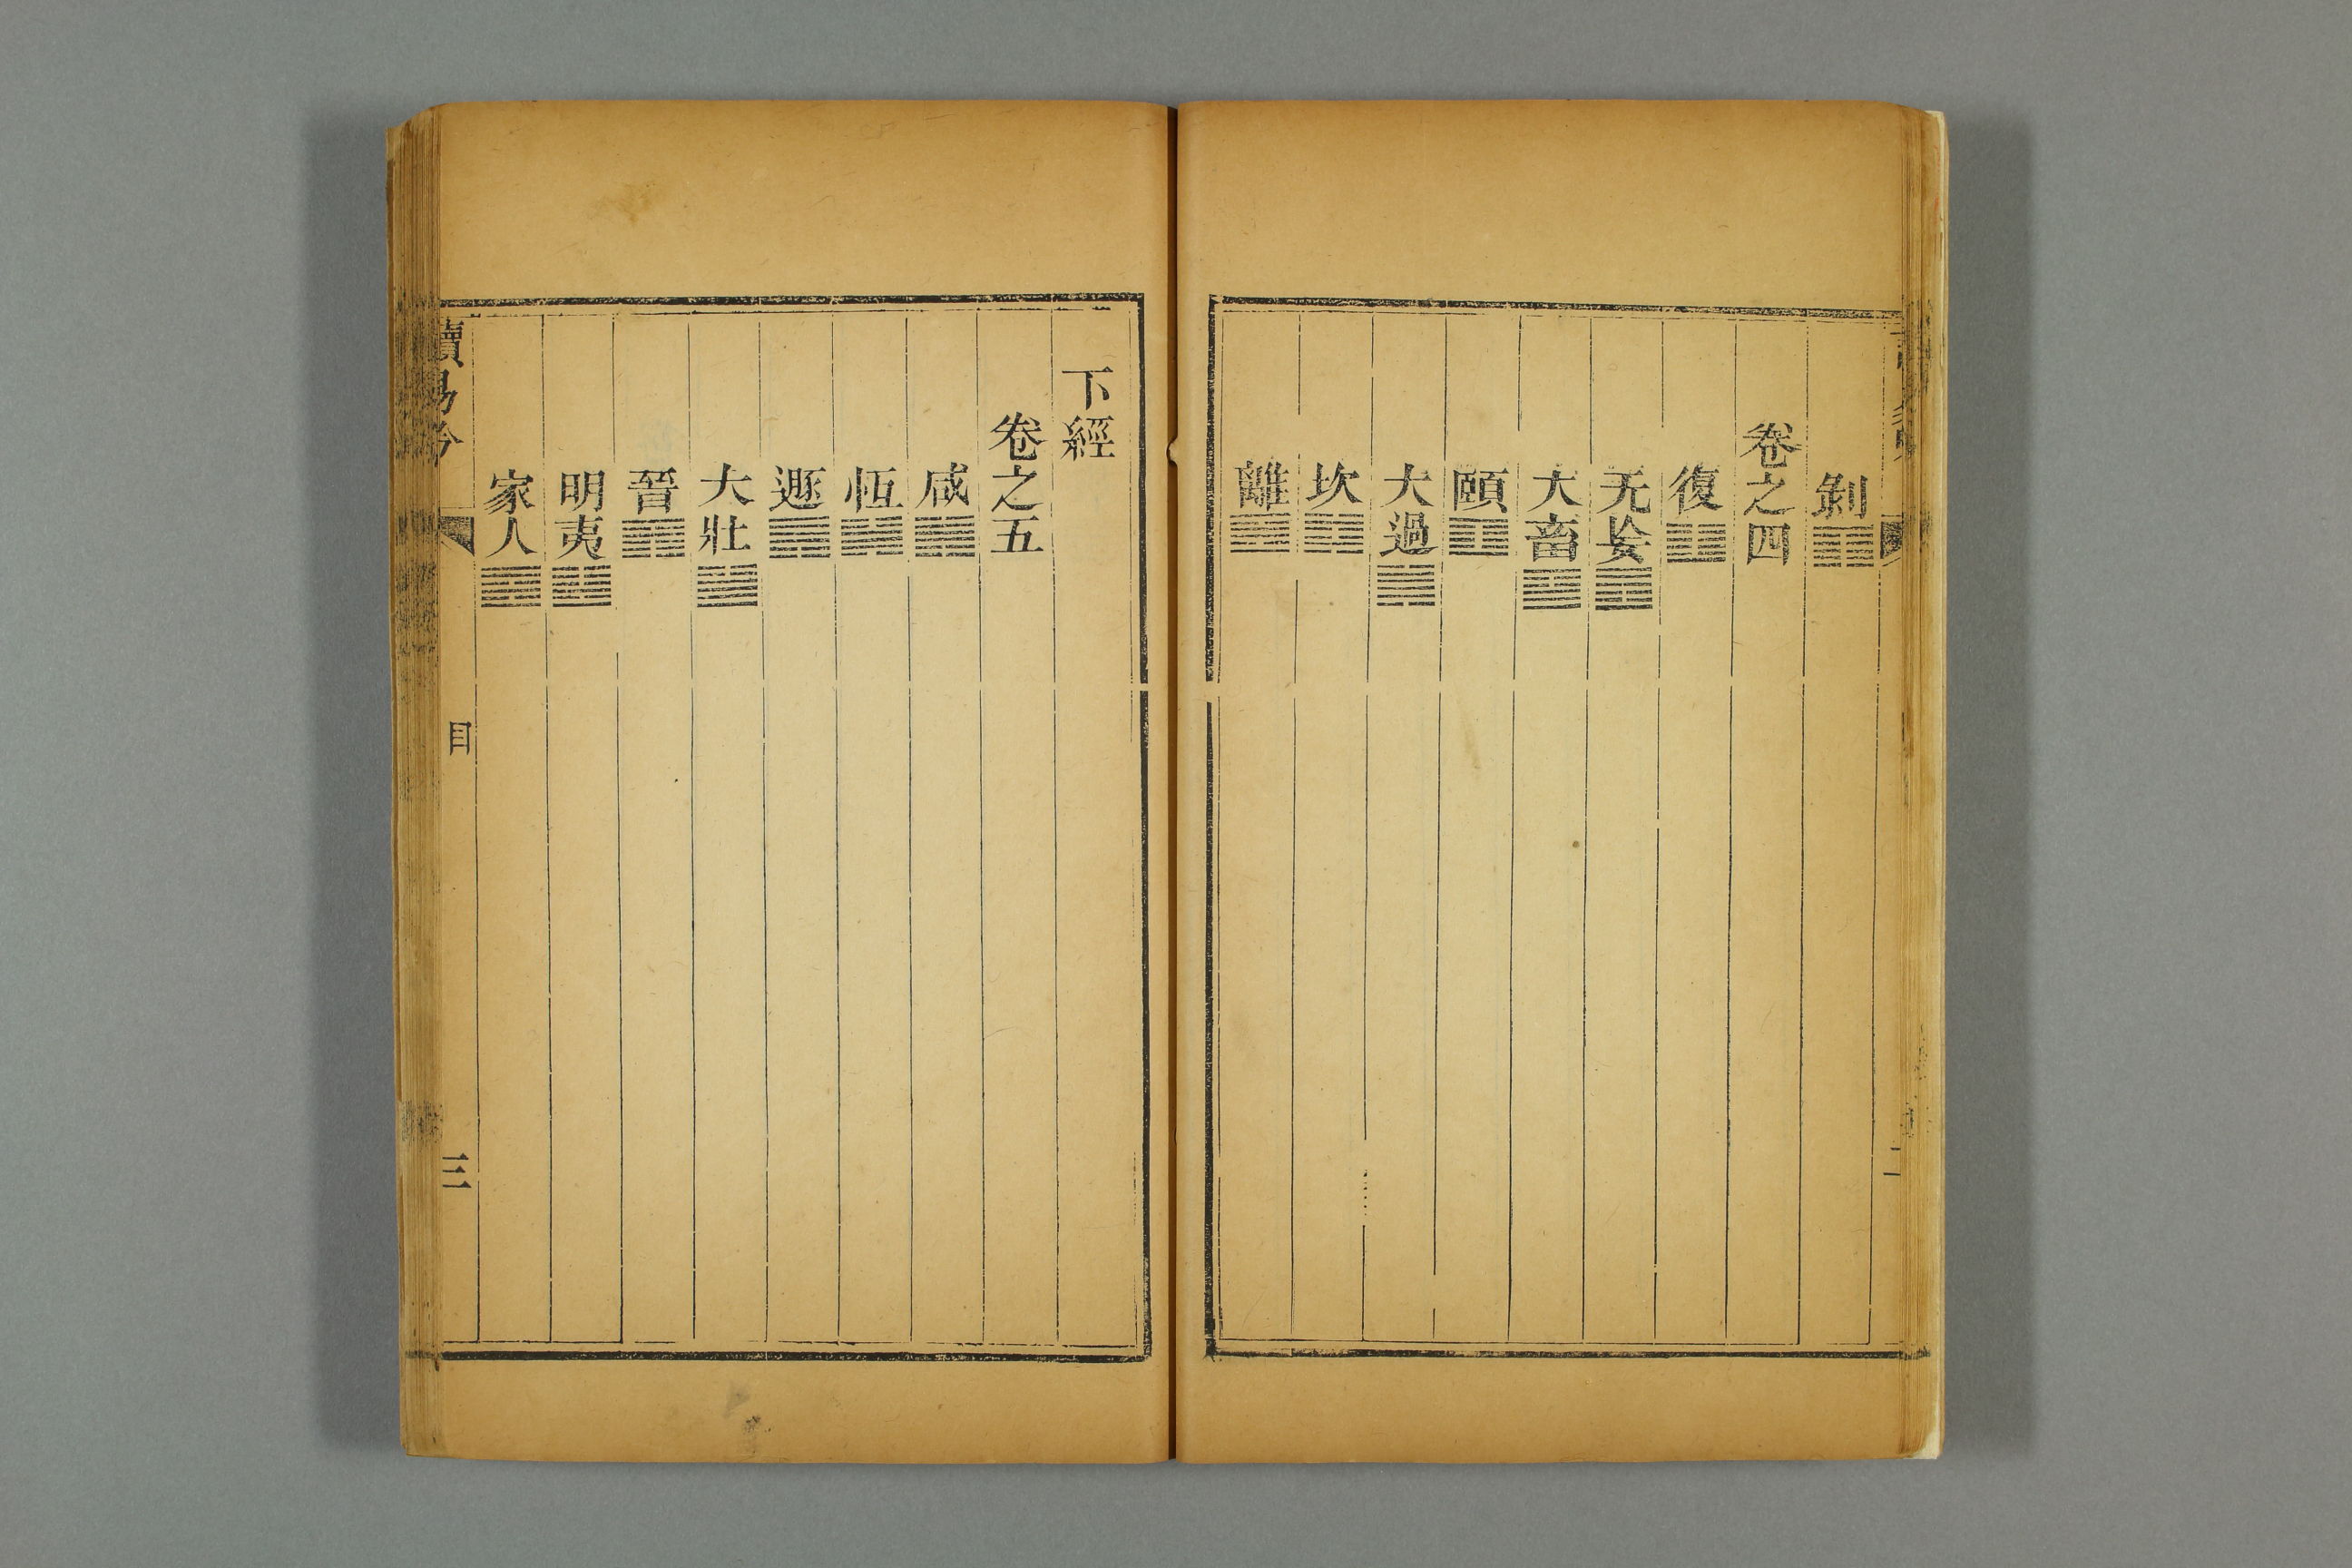 剝䷖
卷之四
復䷗
无妄䷘
大畜䷙
頤䷚
大過䷛
坎䷜
離䷝
下經
卷之五
咸䷞
恆䷟
遯䷠
大壯䷡
晉䷢
明夷䷣
家人䷤
讀易
目
三